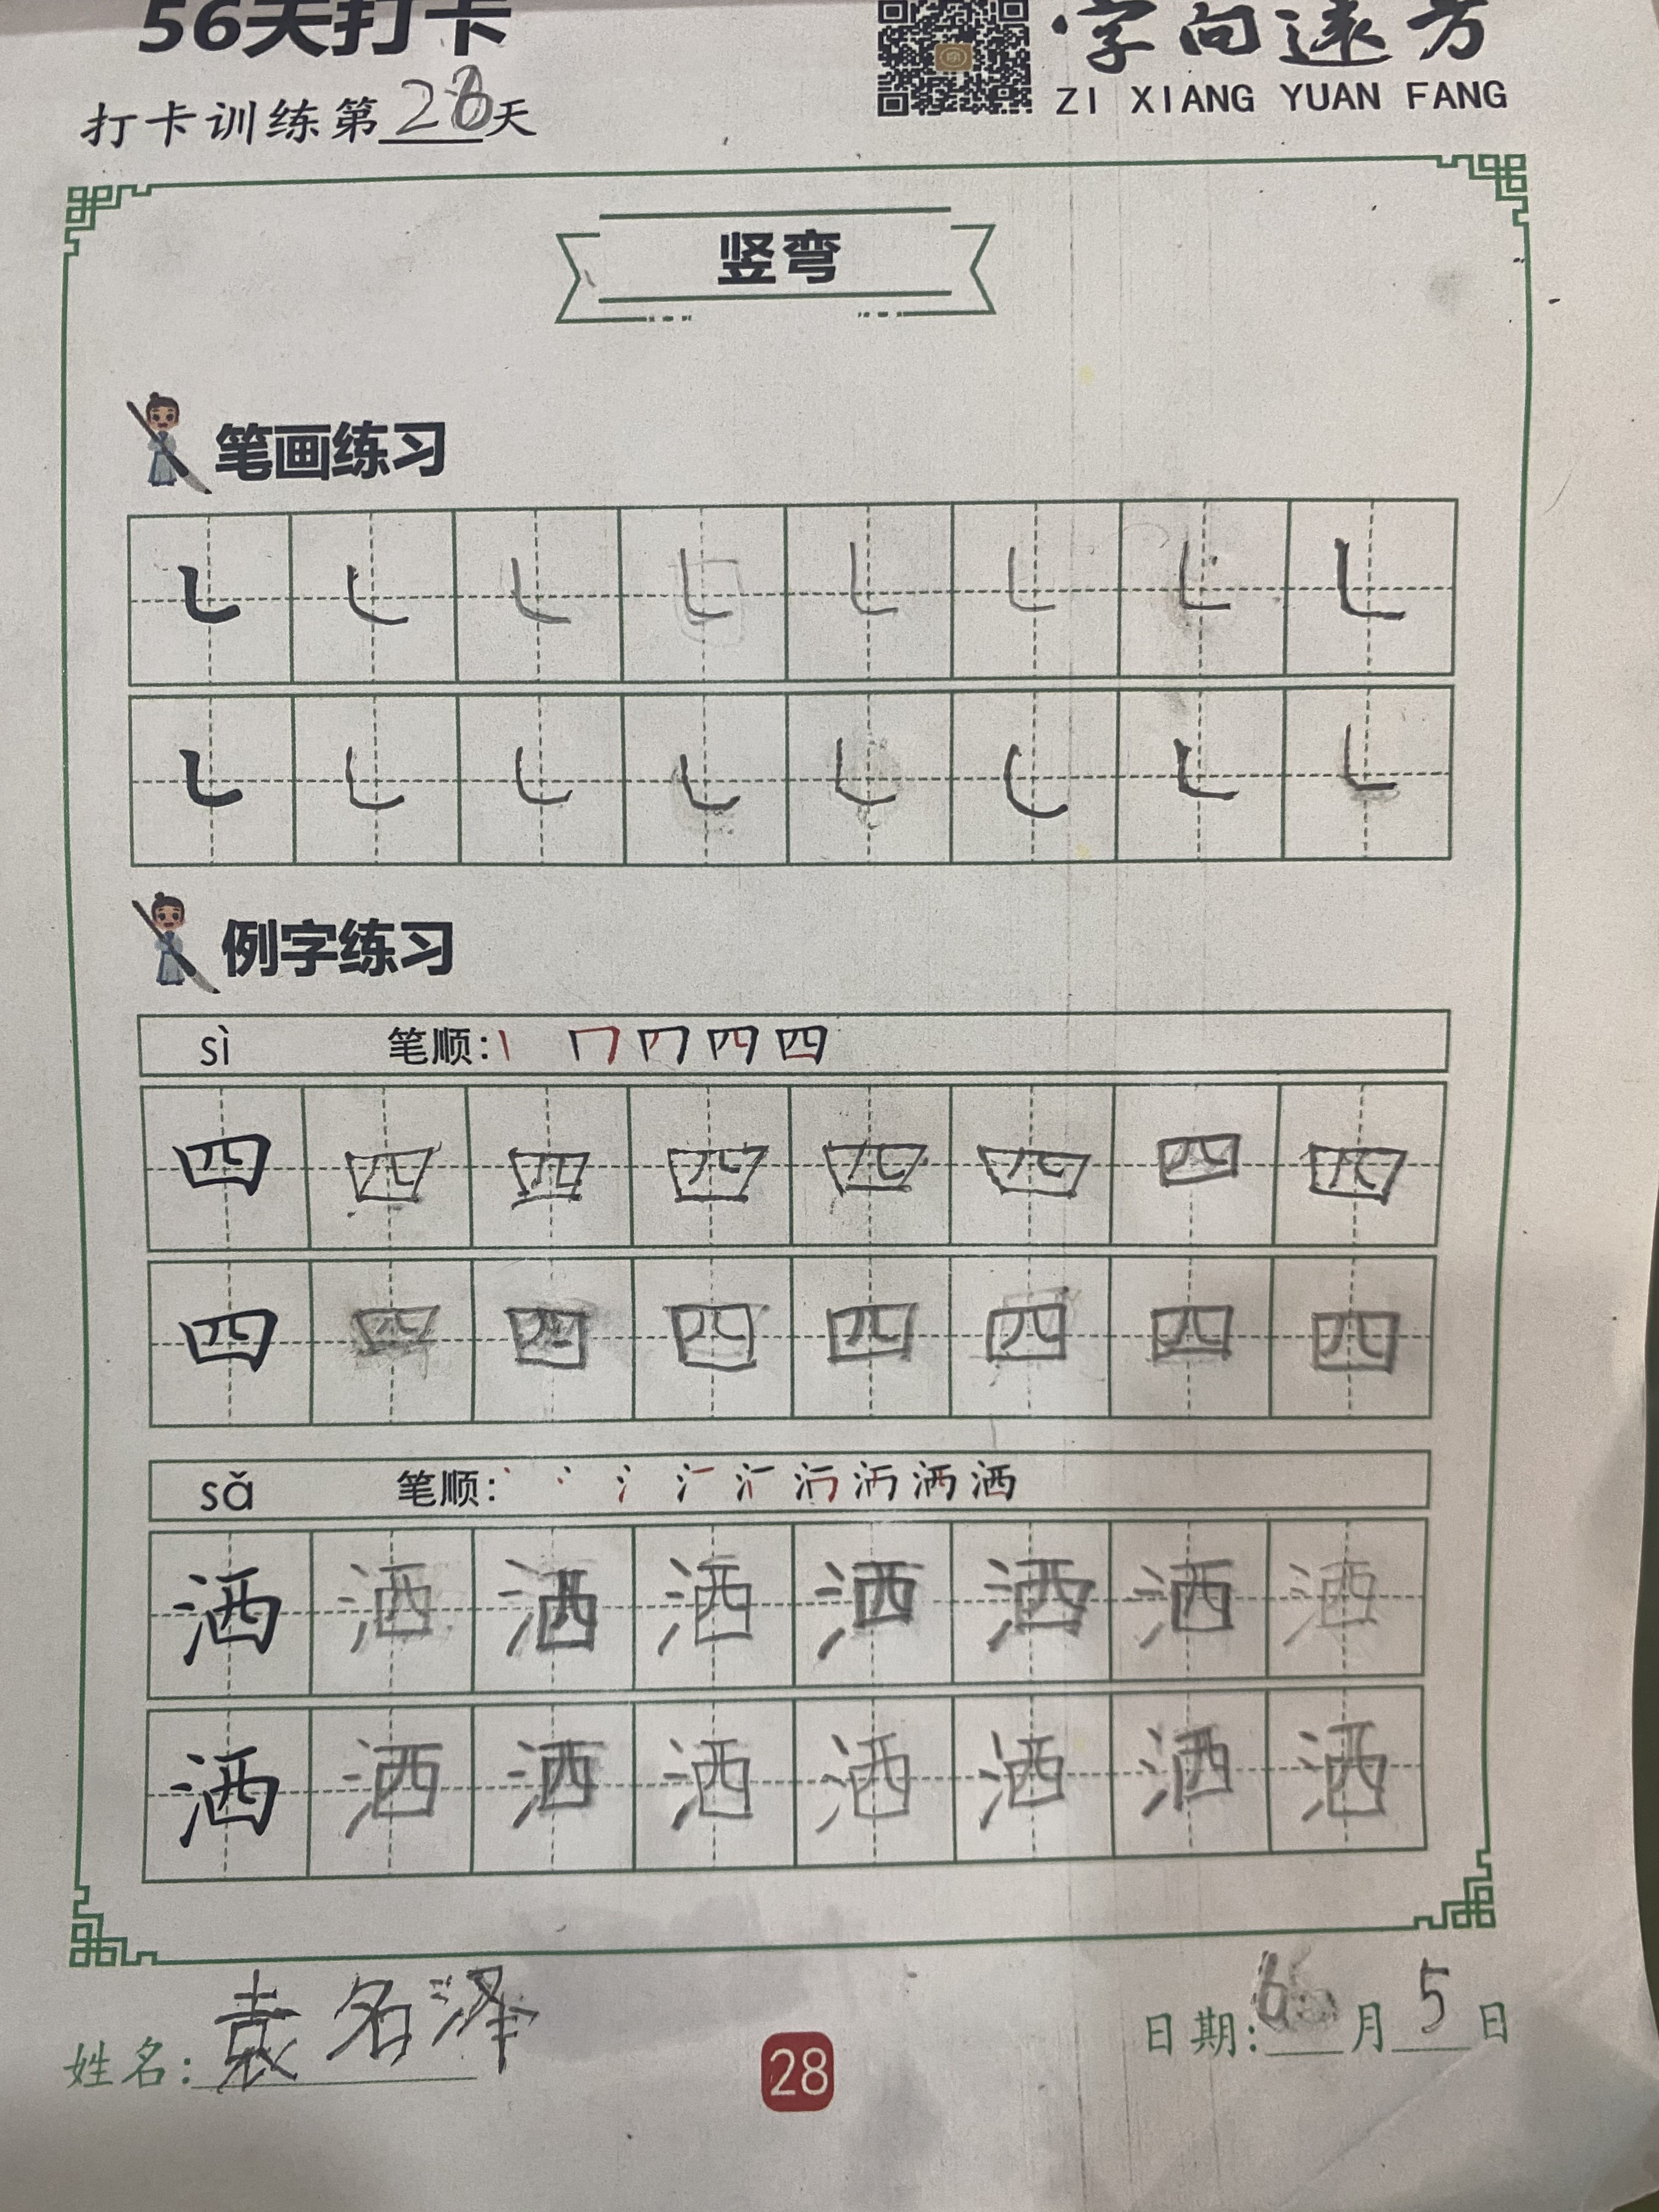 56天打卡
字向远方
ZI XIANG YUAN FANG
打卡训练第28天
竖弯
笔画练习
例字练习
sì 笔顺: 四
四 四 四 四 四 四 四 四
四 四 四 四 四 四 四 四
sǎ 笔顺: 洒
洒 洒 洒 洒 洒 洒 洒 洒
洒 洒 洒 洒 洒 洒 洒 洒
姓名: 袁名泽
28
日期: 6月5日